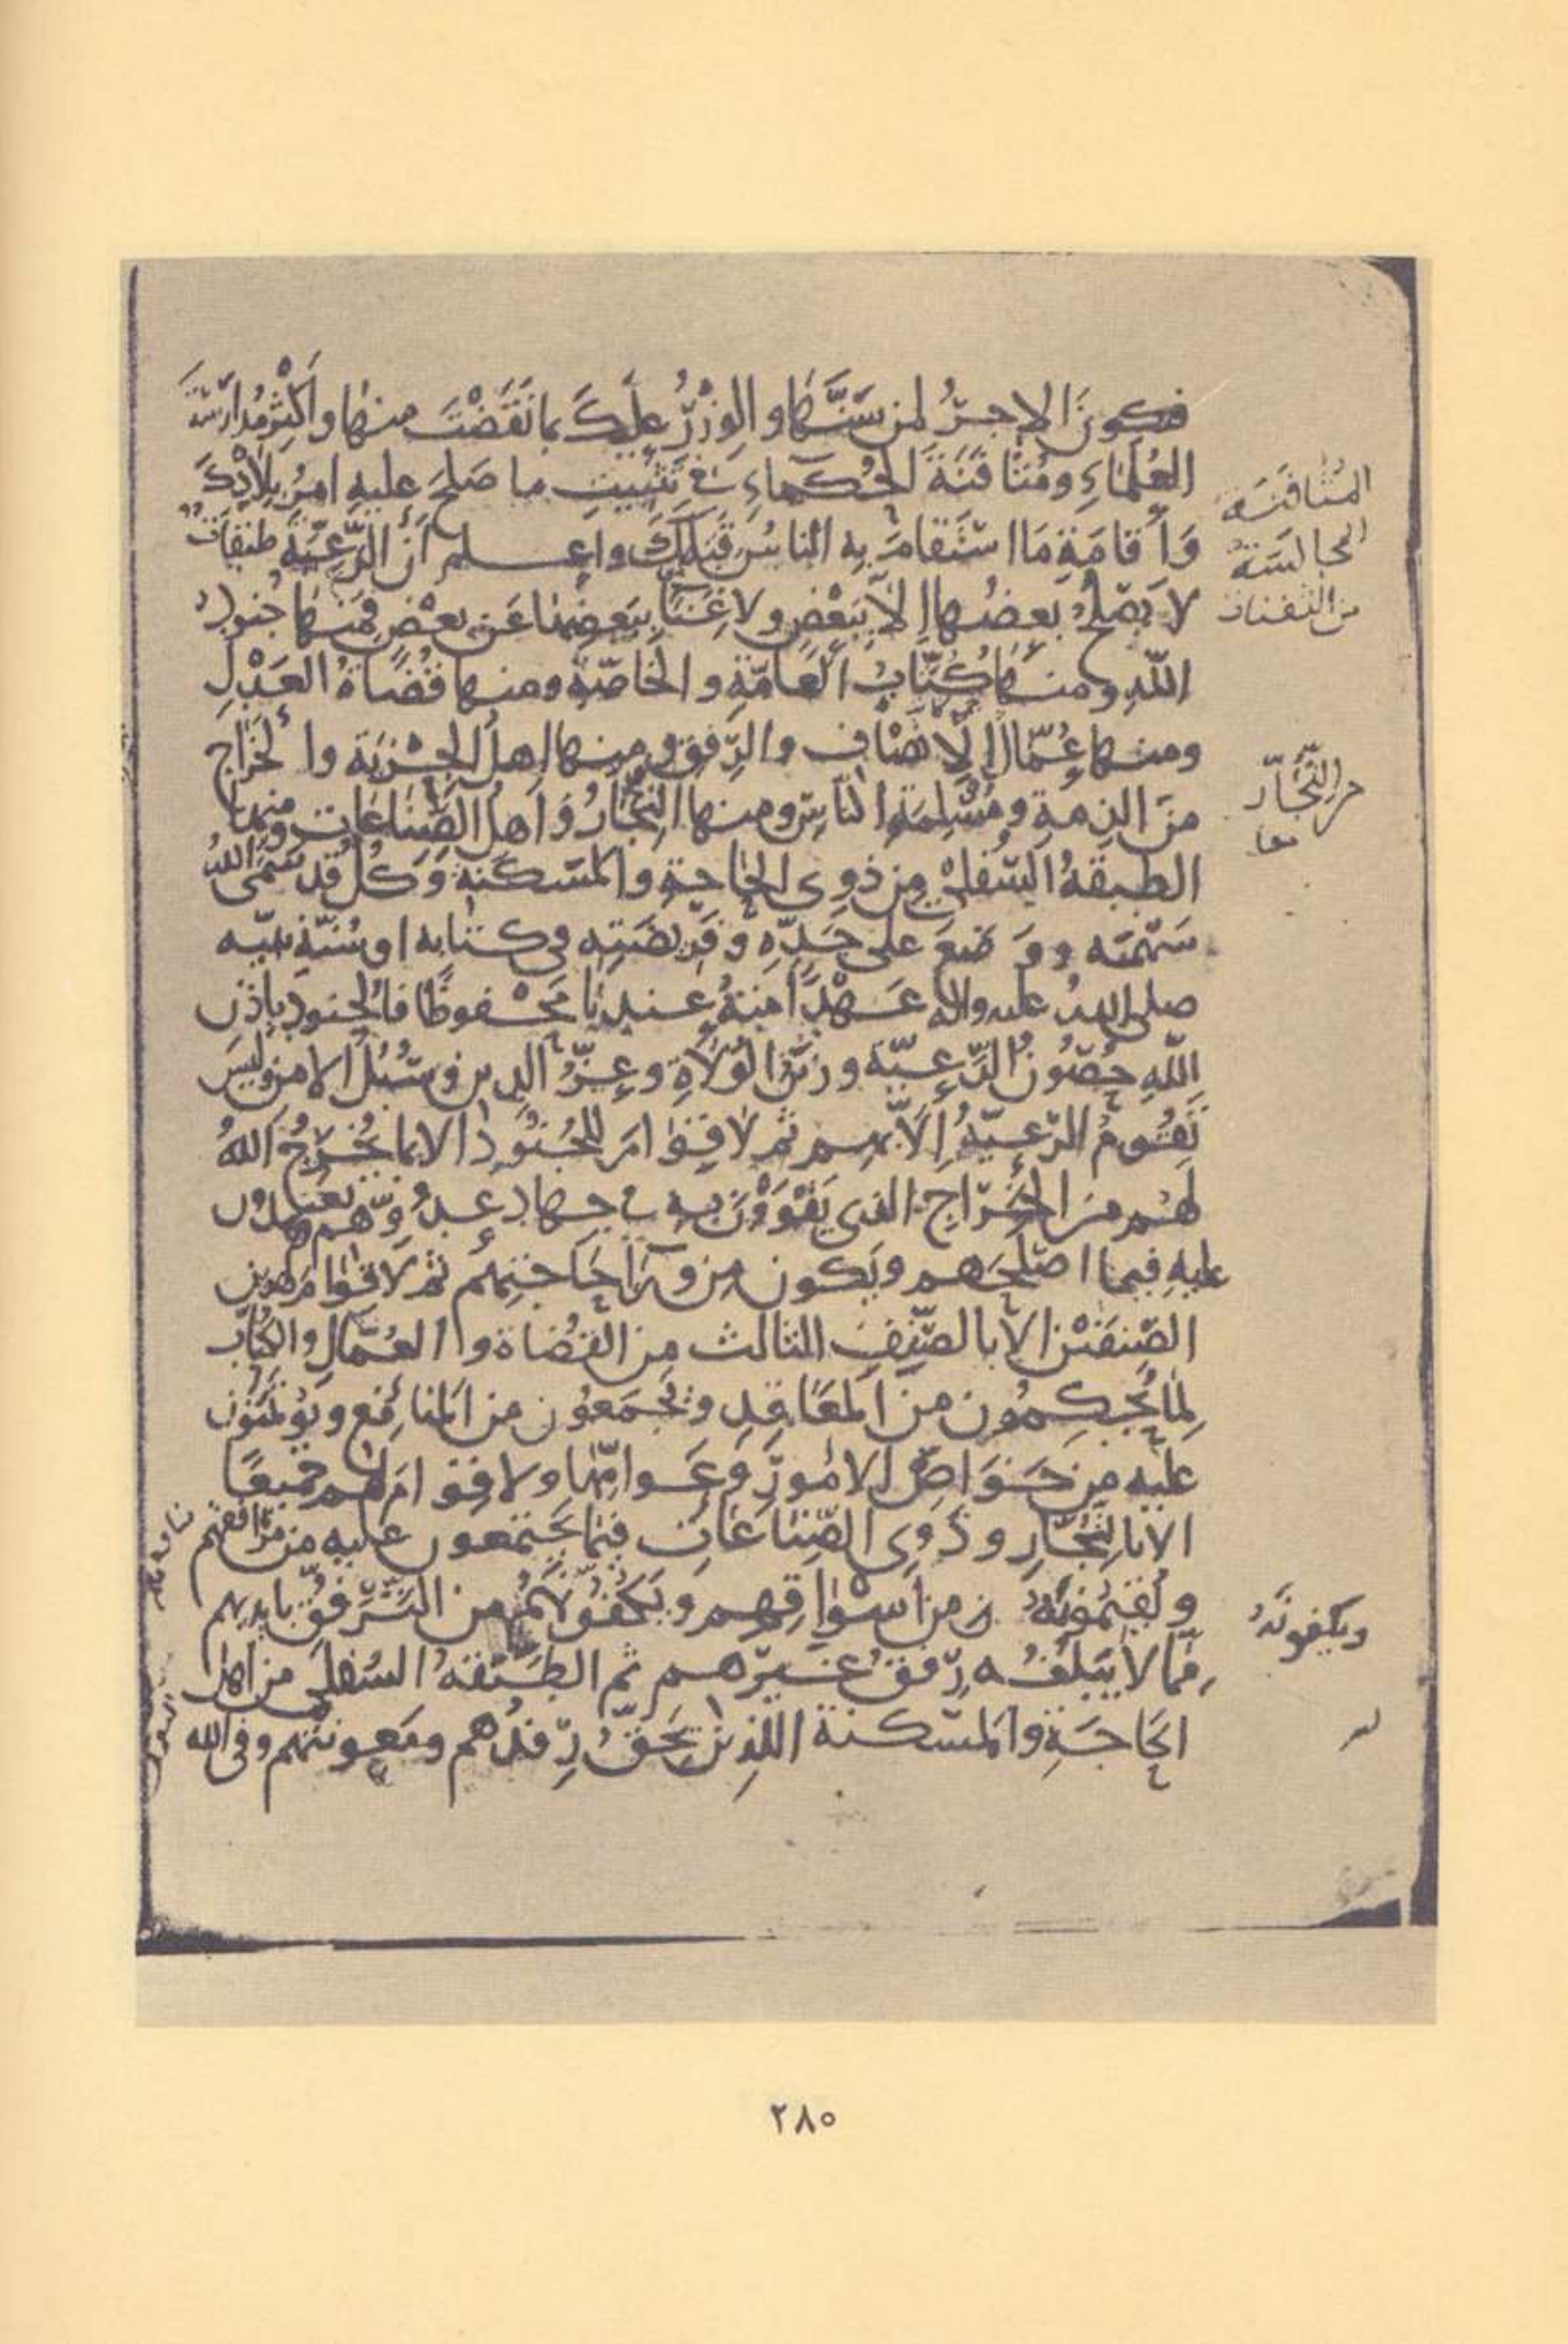 فيكون الاجرُ لمن سَنَّهَا والوِزْرُ عليكَ بما نَقَضْتَ منها واَكْثِرْ مُدَارَسَةَ
العُلَمَاءِ ومُثَافَنَةَ الحُكَمَاءِ في تَثْبِيتِ ما صَلَحَ عليهِ امرُ بِلَادِكَ
المُثَافَنَة
المجالسَة
من الثفنات
وَاِقامَةِ مَا استَقَامَ بِه الناسُ قَبْلَكَ واعلم اَنَّ الرَّعِيَّةَ طبقاتٌ
لا يصْلحُ بعضُها اِلّا بِبَعْضٍ ولا غِنَا بِبَعضِها عَن بعْضٍ فمنها جُنودُ
اللّهِ ومنها كُتَّابُ العَامّةِ والخاصّةِ ومنها قُضَاةُ العَدْلِ
ومنها عُمّالُ الاِنصَافِ والرِّفقِ ومنها اهلُ الجِزْيَةِ والخَرَاجِ
منَ الذمةِ ومُسْلِمَةِ الناسِ ومنها التُّجّارُ وَاَهلُ الصِّنَاعَاتِ ومنها
من التُّجَّار
معا
الطبقةُ السُّفلى مِن ذوِى الحاجةِ والمَسكَنةِ وَكُلٌّ قد سَمَّى اللهُ
سَهْمَه ووَضعَ على حَدِّهِ وَفَرِيضَتِه في كتابه او سُنّةِ نبيّه
صلى الله عليه واله عَهْدًا منهُ عندنا مَحْفوظًا فالجنود باذن
اللّهِ حُصُونُ الرّعيّة وزَيْنُ الوُلَاةِ وعِزُّ الدين وسُبُلُ الامن وليسَ
تَقُومُ الرّعيّةُ اِلّا بهم ثم لا قِوَامَ للجُنُودِ الا بما يُخْرِجُ اللهُ
لهُم منَ الخَرَاجِ الذى يَقْوَوْنَ به في جهادِ عدُوِّهم ويعتمدون
عليهِ فيما اصلحَهم ويكون مِن وَرَاءِ حَاجَتِهِم ثم لا قِوَامَ لهذين
الصِّنفَيْن الاّ بالصِّنفِ الثالث مِن القُضاة والعُمّالِ والكُتّاب
لِمَا يُحكِمُون منَ المَعَاقِدِ ويَجْمَعُون من المنافِعِ ويُؤْتَمَنُون
عَليْه مِن خَوَاصِّ الامُورِ وَعَوامِّها ولا قِوَامَ لهم جميعًا
الا بالتُّجّارِ وذَوِى الصِّنَاعَاتِ فيما يجتمعون عليه من مرافقهم
ويُقيمُونَهُ من اَسْوَاقِهم وَيَكفُونَهُم من التَّرَفُّقِ بايديهم
ويكفونَهُ
مِمّا لا يَبلغُه رِفقُ غَيرِهم ثم الطبقةُ السُفلى من اهل
الحَاجَةِ والمَسكنة اللذين يَحقُّ رِفدُهم ومَعونتهم وفى الله
٢٨٠